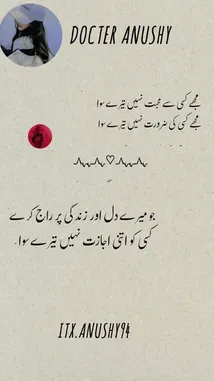 DOCTER ANUSHY
مجھے کسی سے محبت نہیں تیرے سوا
مجھے کسی کی ضرورت نہیں تیرے سوا
جو میرے دل اور زندگی پر راج کرے
کسی کو اتنی اجازت نہیں تیرے سوا.
ITX.ANUSHY94